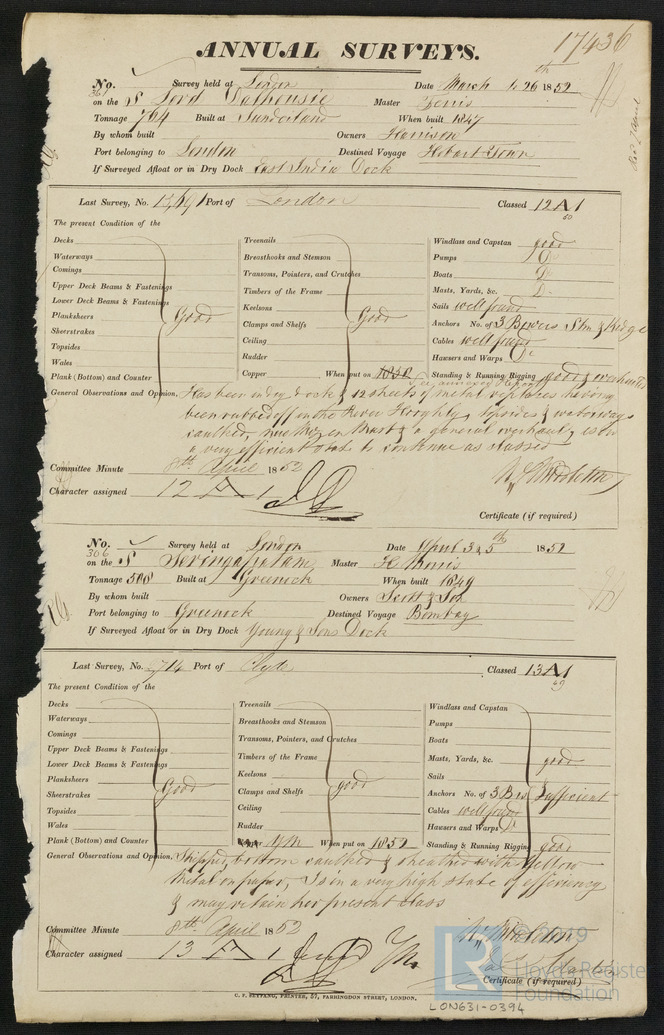 17436
ANNUAL SURVEYS.
No. 361 Survey held at London Date March to 26th 1852
on the S Lord Dalhousie Master
Tonnage 764 Built at Sunderland When built 1847
By whom built Owners Harrison
Port belonging to London Destined Voyage Hobart Town
If Surveyed Afloat or in Dry Dock East India Dock
Last Survey, No. Port of London Classed 12 A 1
The present Condition of the
Decks
Waterways
Comings
Upper Deck Beams & Fastenings
Lower Deck Beams & Fastenings
Planksheers Good
Sheerstrakes
Topsides
Wales
Plank (Bottom) and Counter
Treenails
Breasthooks and Stemson
Transoms, Pointers, and Crutches
Timbers of the Frame
Keelsons
Clamps and Shelfs Good
Ceiling
Rudder
Copper When put on 1850
Windlass and Capstan good
Pumps Do
Boats Do
Masts, Yards, &c. Do
Sails well found
Anchors No. of 3 Bowers Stm & Kedge
Cables well found
Hawsers and Warps Do
Standing & Running Rigging good & overhauled
General Observations and Opinion. Has been in dry dock & 12 sheets of metal replaced having
been rubbed off in the River Hooghly, topsides & waterways
caulked, new & a general overhaul, is in
a very efficient state to continue as classed
Committee Minute 8th April 1852
Character assigned 12 A 1
Certificate (if required)
No. 306 Survey held at London Date April 3 & 5th 1852
on the S Seringapatam Master H Morris
Tonnage 500 Built at Greenock When built 1849
By whom built Owners Scott & Son
Port belonging to Greenock Destined Voyage Bombay
If Surveyed Afloat or in Dry Dock Young & Sons Dock
Last Survey, No. 714 Port of Clyde Classed 13 A 1
49
The present Condition of the
Decks
Waterways
Comings
Upper Deck Beams & Fastenings
Lower Deck Beams & Fastenings
Planksheers Good
Sheerstrakes
Topsides
Wales
Plank (Bottom) and Counter
Treenails
Breasthooks and Stemson
Transoms, Pointers, and Crutches
Timbers of the Frame
Keelsons
Clamps and Shelfs good
Ceiling
Rudder
YM When put on 1852
Windlass and Capstan
Pumps
Boats
Masts, Yards, &c. good
Sails
Anchors No. of 3 Brs Sufficient
Cables well found
Hawsers and Warps Do
Standing & Running Rigging good
General Observations and Opinion. Stripped, bottom caulked & sheathed with Yellow
Metal on paper, Is in a very high state of efficiency
& may retain her present class
Committee Minute 8th April 1852
Character assigned 13 A 1
Certificate (if required)
C. F. SEYFANG, PRINTER, 57, FARRINGDON STREET, LONDON.
© 2019
Lloyd's Register
Foundation
LON631-0394